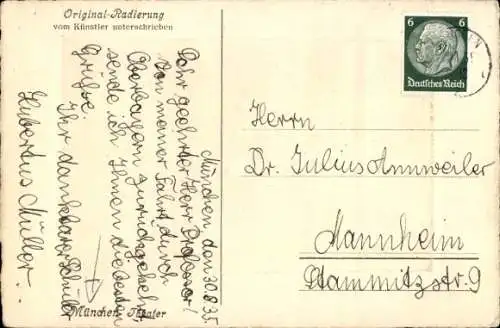 Original-Radierung
vom Künstler unterschrieben
München, den 30.8.35.
Sehr geehrter Herr Professor!
Von meiner Fahrt durch
Oberbayern zurückgekehrt,
sende ich Ihnen die besten
Grüße.
Ihr dankbarer Schüler
Hubertus Müller.
München, Theater
6 6
Deutsches Reich
EN
Herrn
Dr. Julius Annweiler
Mannheim
Stamitzstr. 9